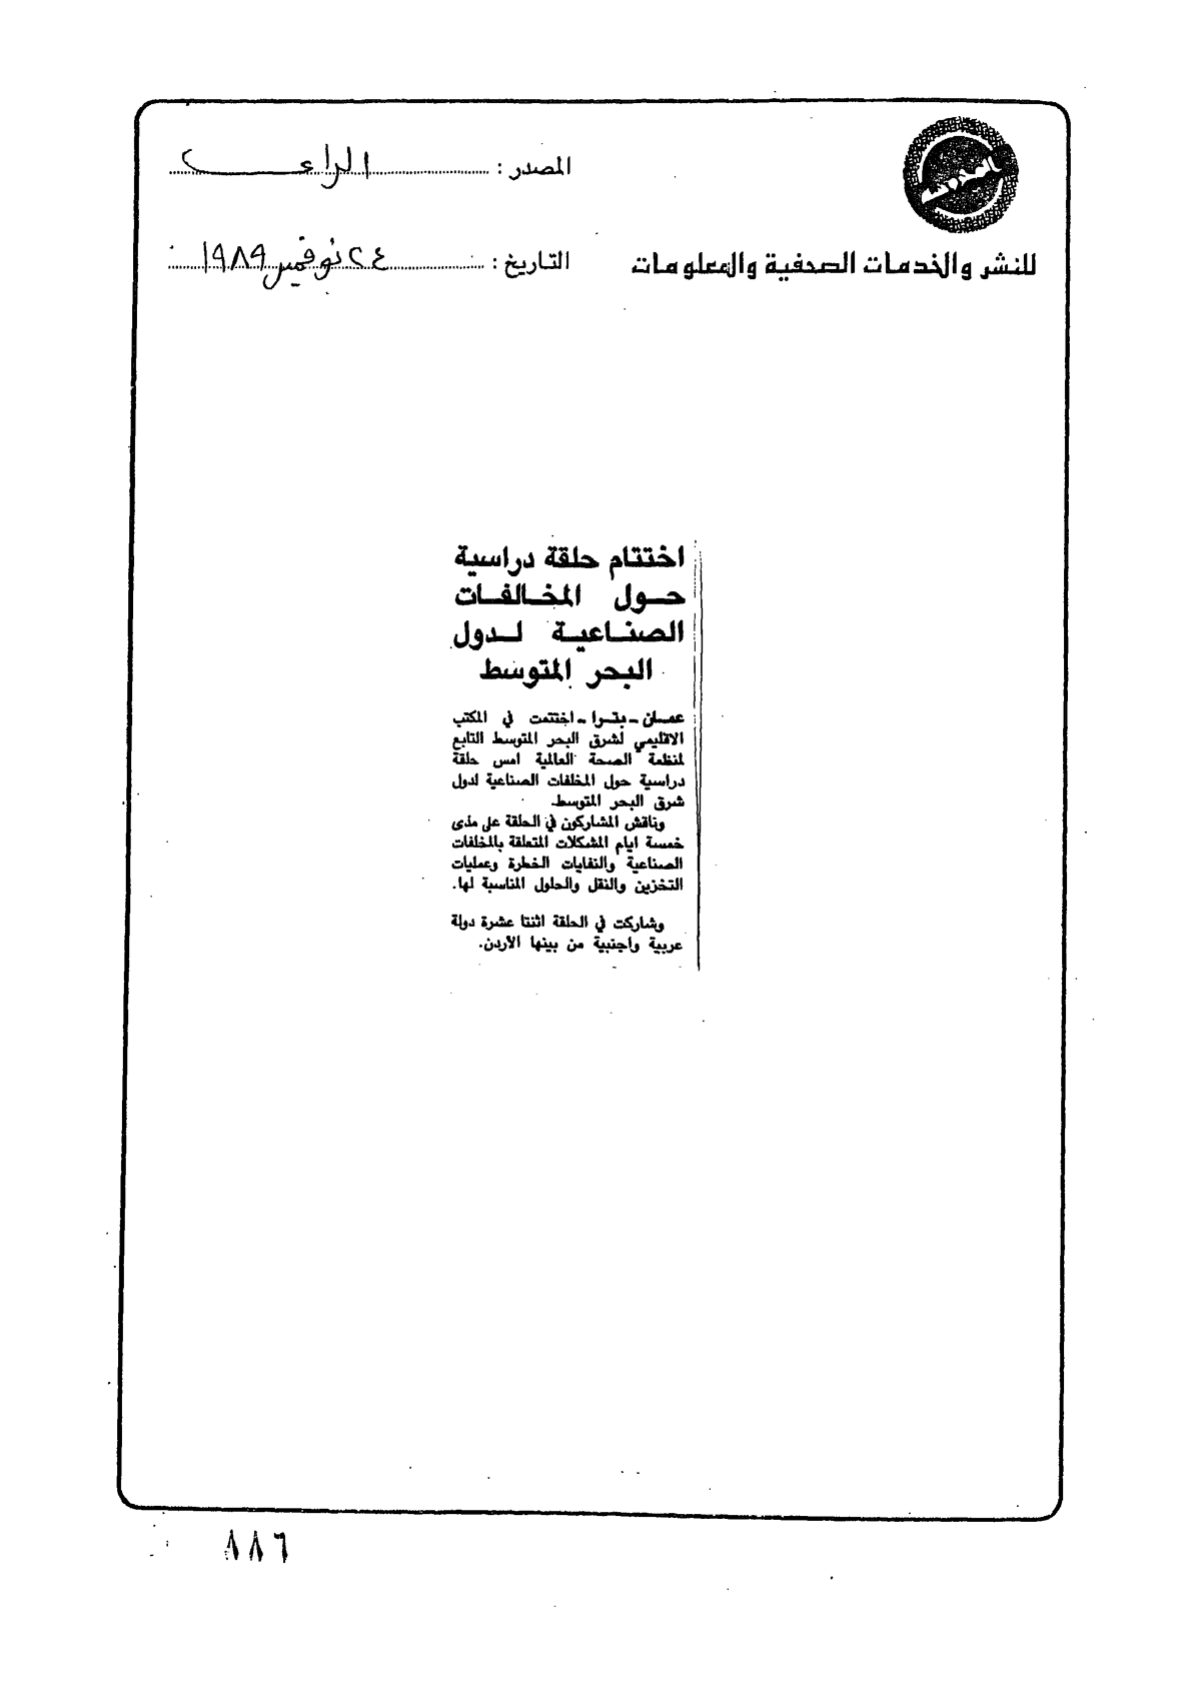 المصدر : الراي
للنشر والخدمات الصحفية والمعلومات
التاريخ : ٢٤ نوفمبر ١٩٨٩
اختتام حلقة دراسية
حول المخالفات
الصناعية لدول
البحر المتوسط
عمان - بترا - اختتمت في المكتب
الاقليمي لشرق البحر المتوسط التابع
لمنظمة الصحة العالمية امس حلقة
دراسية حول المخلفات الصناعية لدول
شرق البحر المتوسط.
وناقش المشاركون في الحلقة على مدى
خمسة ايام المشكلات المتعلقة بالمخلفات
الصناعية والنفايات الخطرة وعمليات
التخزين والنقل والحلول المناسبة لها.
وشاركت في الحلقة اثنتا عشرة دولة
عربية واجنبية من بينها الأردن.
٨٨٦